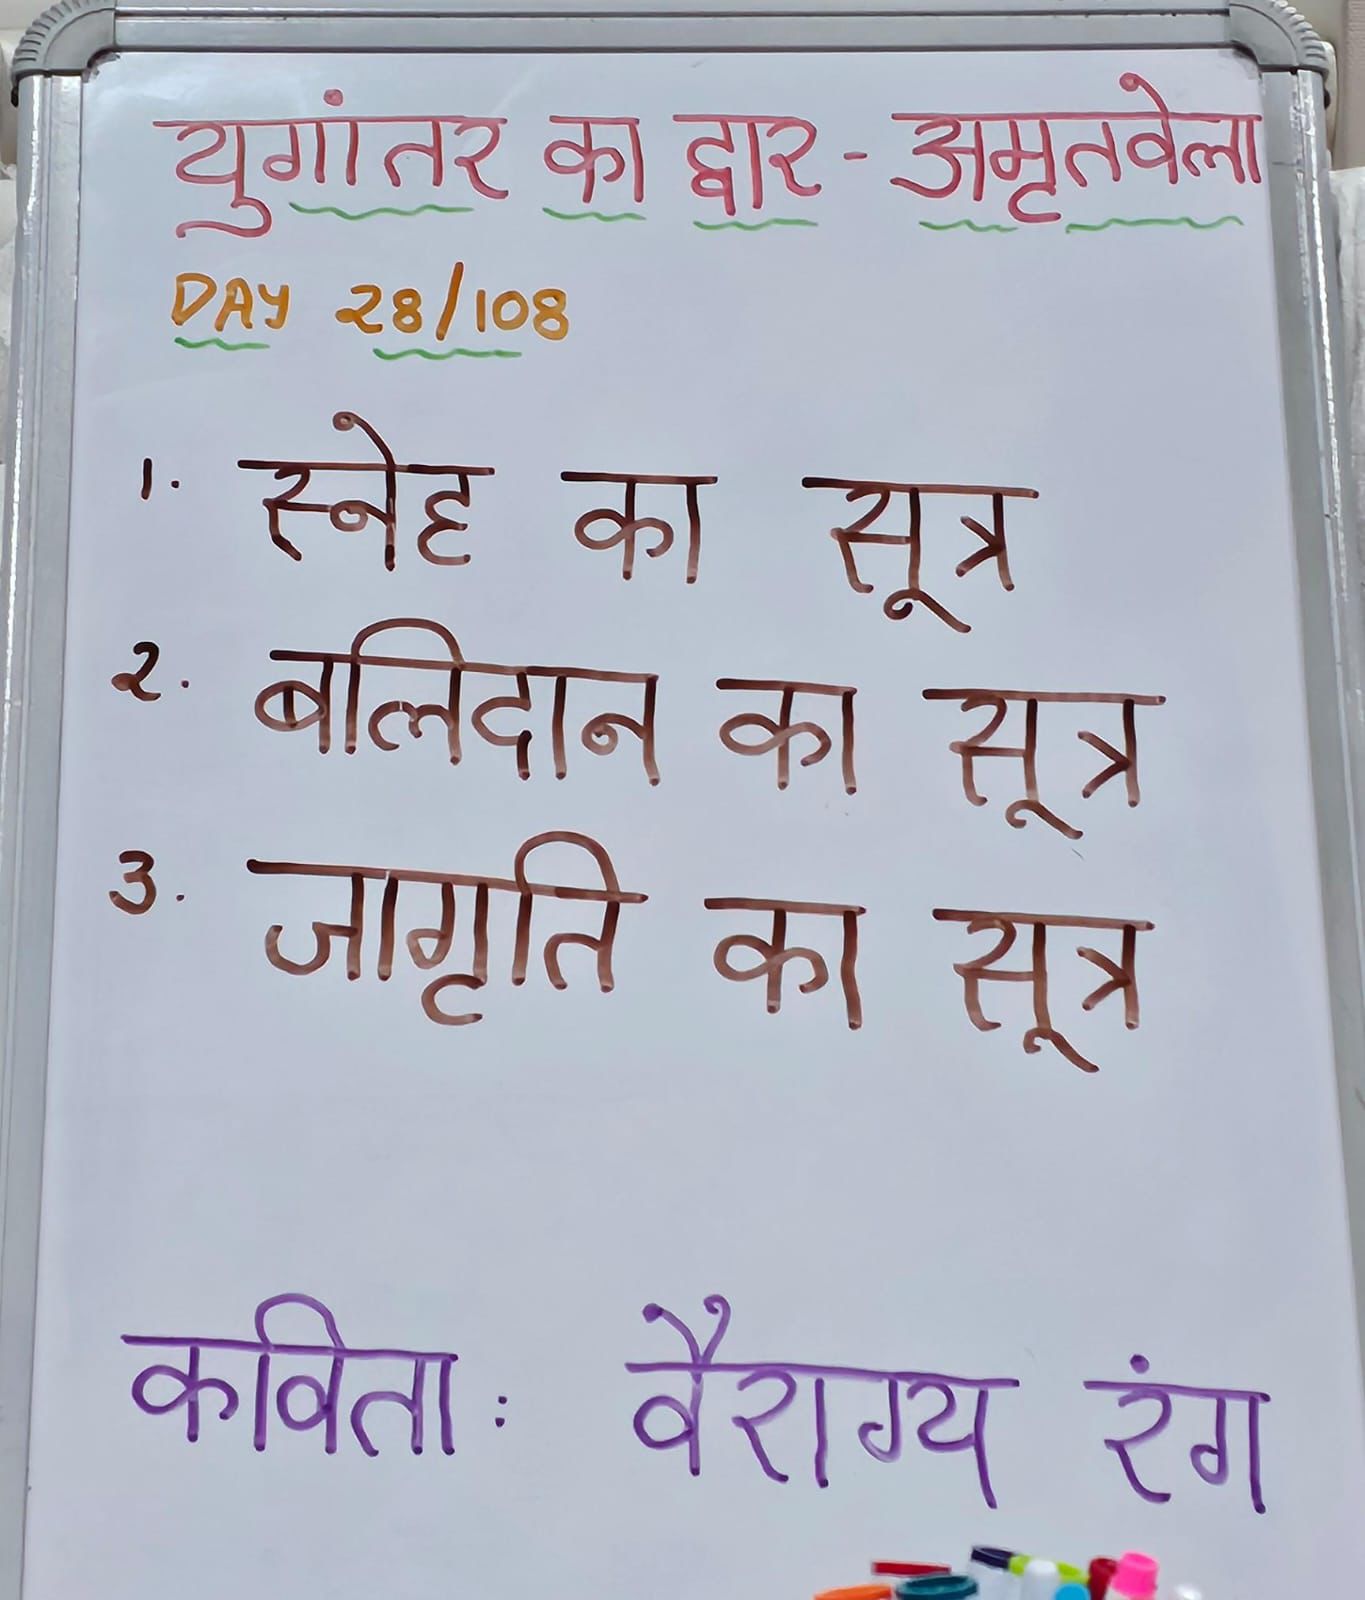 युगांतर का द्वार - अमृतवेला
DAY 28/108
1. स्नेह का सूत्र
2. बलिदान का सूत्र
3. जागृति का सूत्र
कविता : वैराग्य रंग